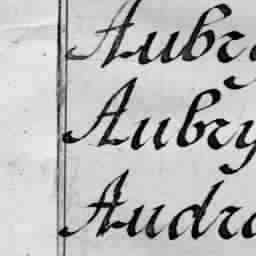 Aubry
Aubry
Audra